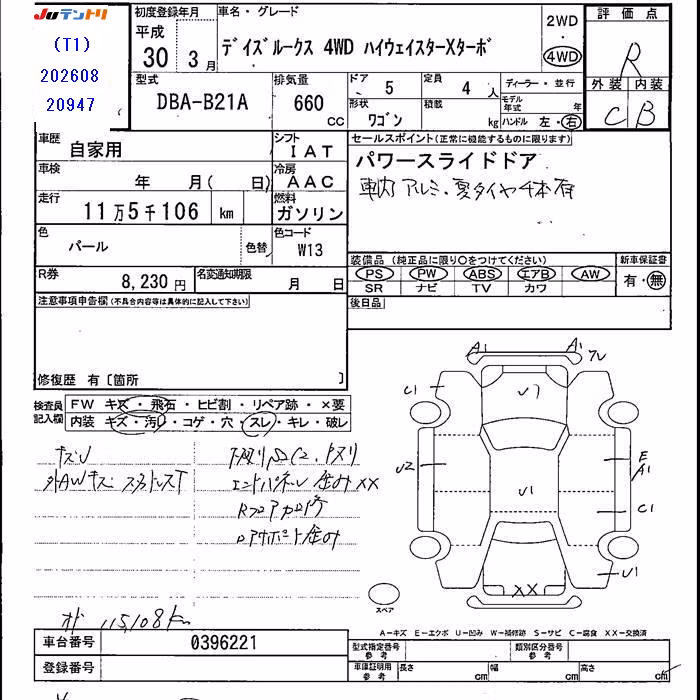 JUテントリ
(T1)
202608
20947
初度登録年月
平成
30 3月
車名・グレード
デイズルークス 4WD ハイウェイスターXターボ
2WD
・
4WD
評価点
R
外装 内装
C B
型式
DBA-B21A
排気量
660
CC
ドア
5
定員
4 人
形状
ワゴン
積載
kg
ディーラー・並行
モデル年式 年
ハンドル 左・右
車歴
自家用
シフト
IAT
車検
年 月( 日)
冷房
AAC
走行
11万5千106 km
燃料
ガソリン
色
パール
色替
色コード
W13
R券
8,230 円
名変通知期限
月 日
セールスポイント(正常に機能するものに限ります)
パワースライドドア
車内アルミ・夏タイヤ4本有
装備品 (純正品に限り○をつけてください)
PS PW ABS エアB AW
SR ナビ TV カワ
新車保証書
有・無
後日品
注意事項申告欄(不具合内容等は具体的に記入して下さい)
修復歴 有〔箇所 〕
検査員記入欄
FW キズ・飛石・ヒビ割・リペア跡・×要
内装 キズ・汚レ・コゲ・穴・スレ・キレ・破レ
キズU
外AWキズ スタッドレスT
下廻りSC2、
エンドパネル歪み XX
Rフロア
歪み
115,108km
A1 A1
C1
U7
U2
E
A1
U1
C1
U1
XX
スペア
A−キズ E−エクボ U−凹み W−補修跡 S−サビ C−腐食 XX−交換済
車台番号
0396221
登録番号
型式指定番号
参考
類別区分番号
参考
車庫証明用
参考
長さ cm
幅 cm
高さ cm